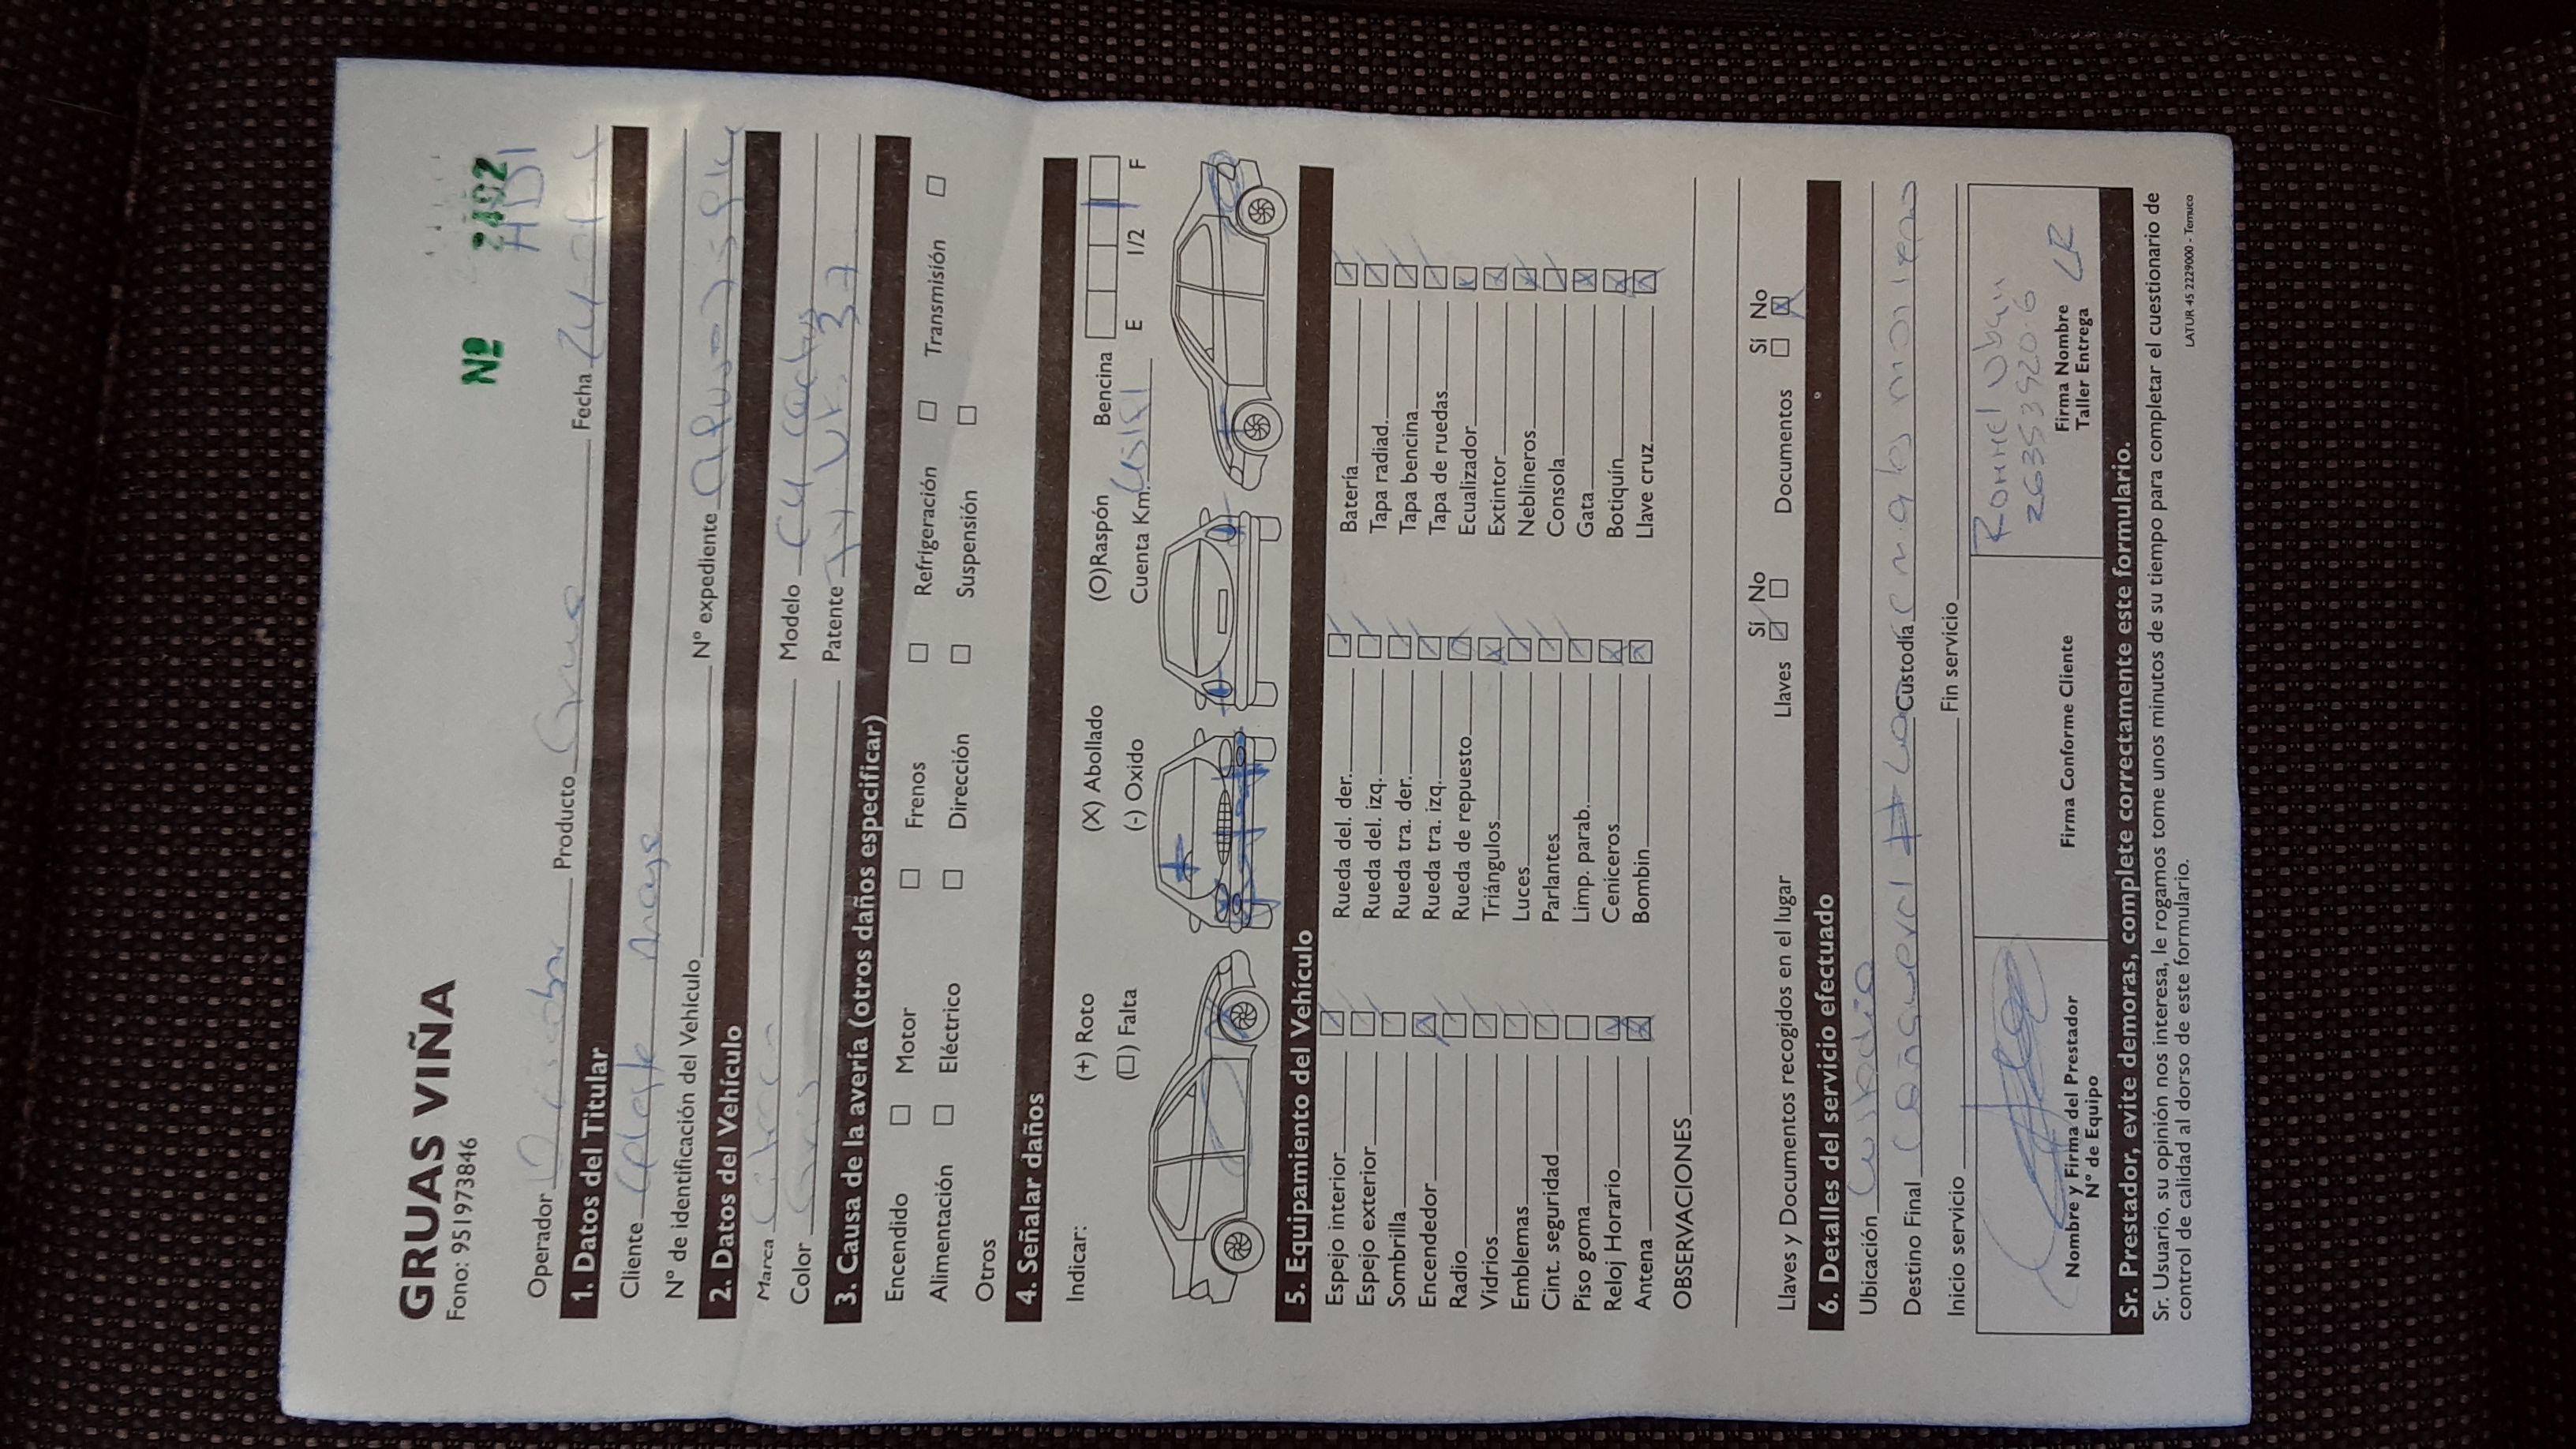 GRUAS VIÑA
Fono: 951973846
Nº 2402
HDI
Operador Producto Grua Fecha
1. Datos del Titular
Cliente
Nº de identificación del Vehículo Nº expediente
2. Datos del Vehículo
Marca Modelo C4
Color Gris Patente 37
3. Causa de la avería (otros daños especificar)
Encendido Motor Frenos Refrigeración Transmisión
Alimentación Eléctrico Dirección Suspensión
Otros
4. Señalar daños
Indicar: (+) Roto (X) Abollado (O)Raspón Bencina
(□) Falta (-) Oxido Cuenta Km. E 1/2 F
5. Equipamiento del Vehículo
Espejo interior Rueda del. der. Batería
Espejo exterior Rueda del. izq. Tapa radiad.
Sombrilla Rueda tra. der. Tapa bencina
Encendedor Rueda tra. izq. Tapa de ruedas
Radio Rueda de repuesto Ecualizador
Vidrios Triángulos Extintor
Emblemas Luces Neblineros
Cint. seguridad Parlantes Consola
Piso goma Limp. parab. Gata
Reloj Horario Ceniceros Botiquín
Antena Bombin Llave cruz
OBSERVACIONES
Llaves y Documentos recogidos en el lugar Llaves Sí No Documentos Sí No
6. Detalles del servicio efectuado
Ubicación Custodia
Destino Final Custodia
Inicio servicio Fin servicio
26353920-6
Nombre y Firma del Prestador
Nº de Equipo
Firma Conforme Cliente
Firma Nombre
Taller Entrega
Sr. Prestador, evite demoras, complete correctamente este formulario.
Sr. Usuario, su opinión nos interesa, le rogamos tome unos minutos de su tiempo para completar el cuestionario de
control de calidad al dorso de este formulario.
LATUR 45 2229000 - Temuco